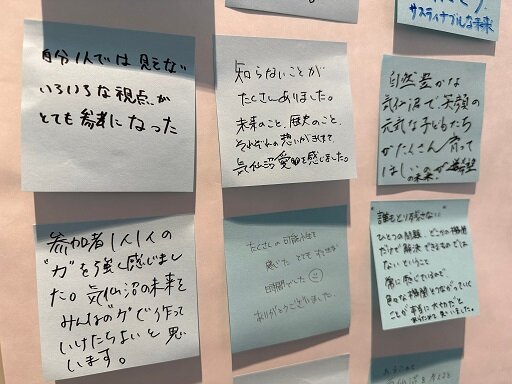 サスティナブルな未来
自分1人では見えない
いろいろな視点が
とても参考になった
知らないことが
たくさんありました。
未来のこと、歴史のこと、
それぞれの想いがきけて
気仙沼愛を感じました。
自然豊かな
気仙沼で、笑顔の
元気な子どもたち
がたくさん育って
ほしい
の未来が
参加者1人1人の
"力"を強く感じまし
た。気仙沼の未来を
みんなの力で作って
いけたらよいと思
います。
たくさんの可能性を
感じた とても
時間でした
ありがとうございました。
"誰もとり残さない"
ひとつの問題、どこかの機関
だけで解決できるものでは
ないということ
常に感じているので、
色々な機関とつながっていく
ことが本当に大切だと
あらためて思いました。